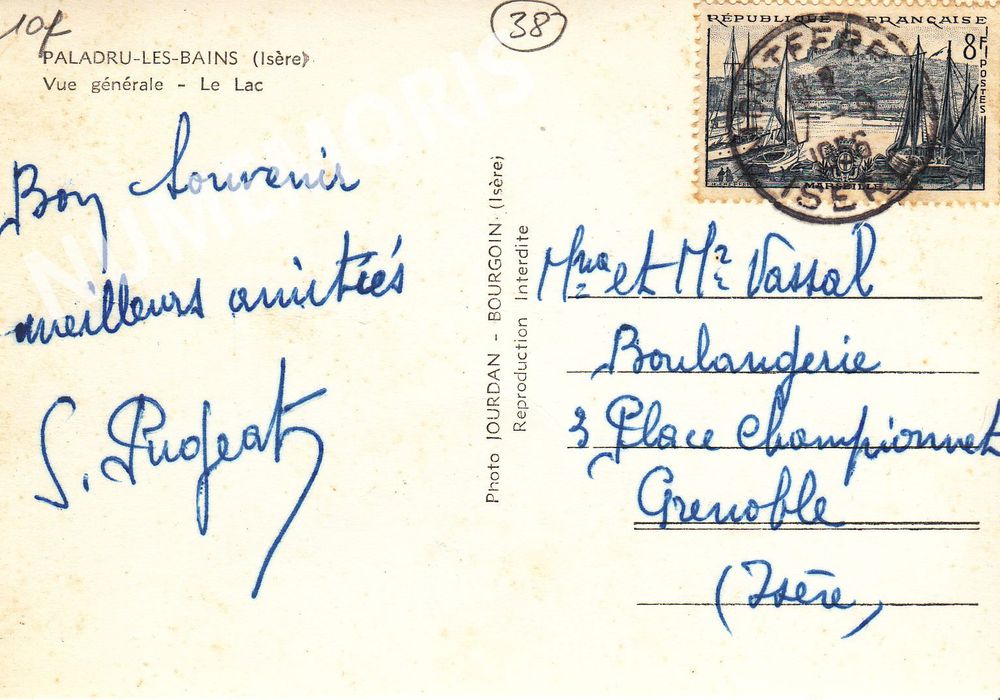 10f
38
PALADRU-LES-BAINS (Isère)
Vue générale - Le Lac
Bon Souvenir
meilleurs amitiés
S. Pugeat
Photo JOURDAN - BOURGOIN (Isère)
Reproduction Interdite
RÉPUBLIQUE FRANÇAISE
8F
POSTES
MARSEILLE
ISERE
Mme et Mr Vassal
Boulangerie
3 Place Championnet
Grenoble
(Isère)
NUMEMORIS